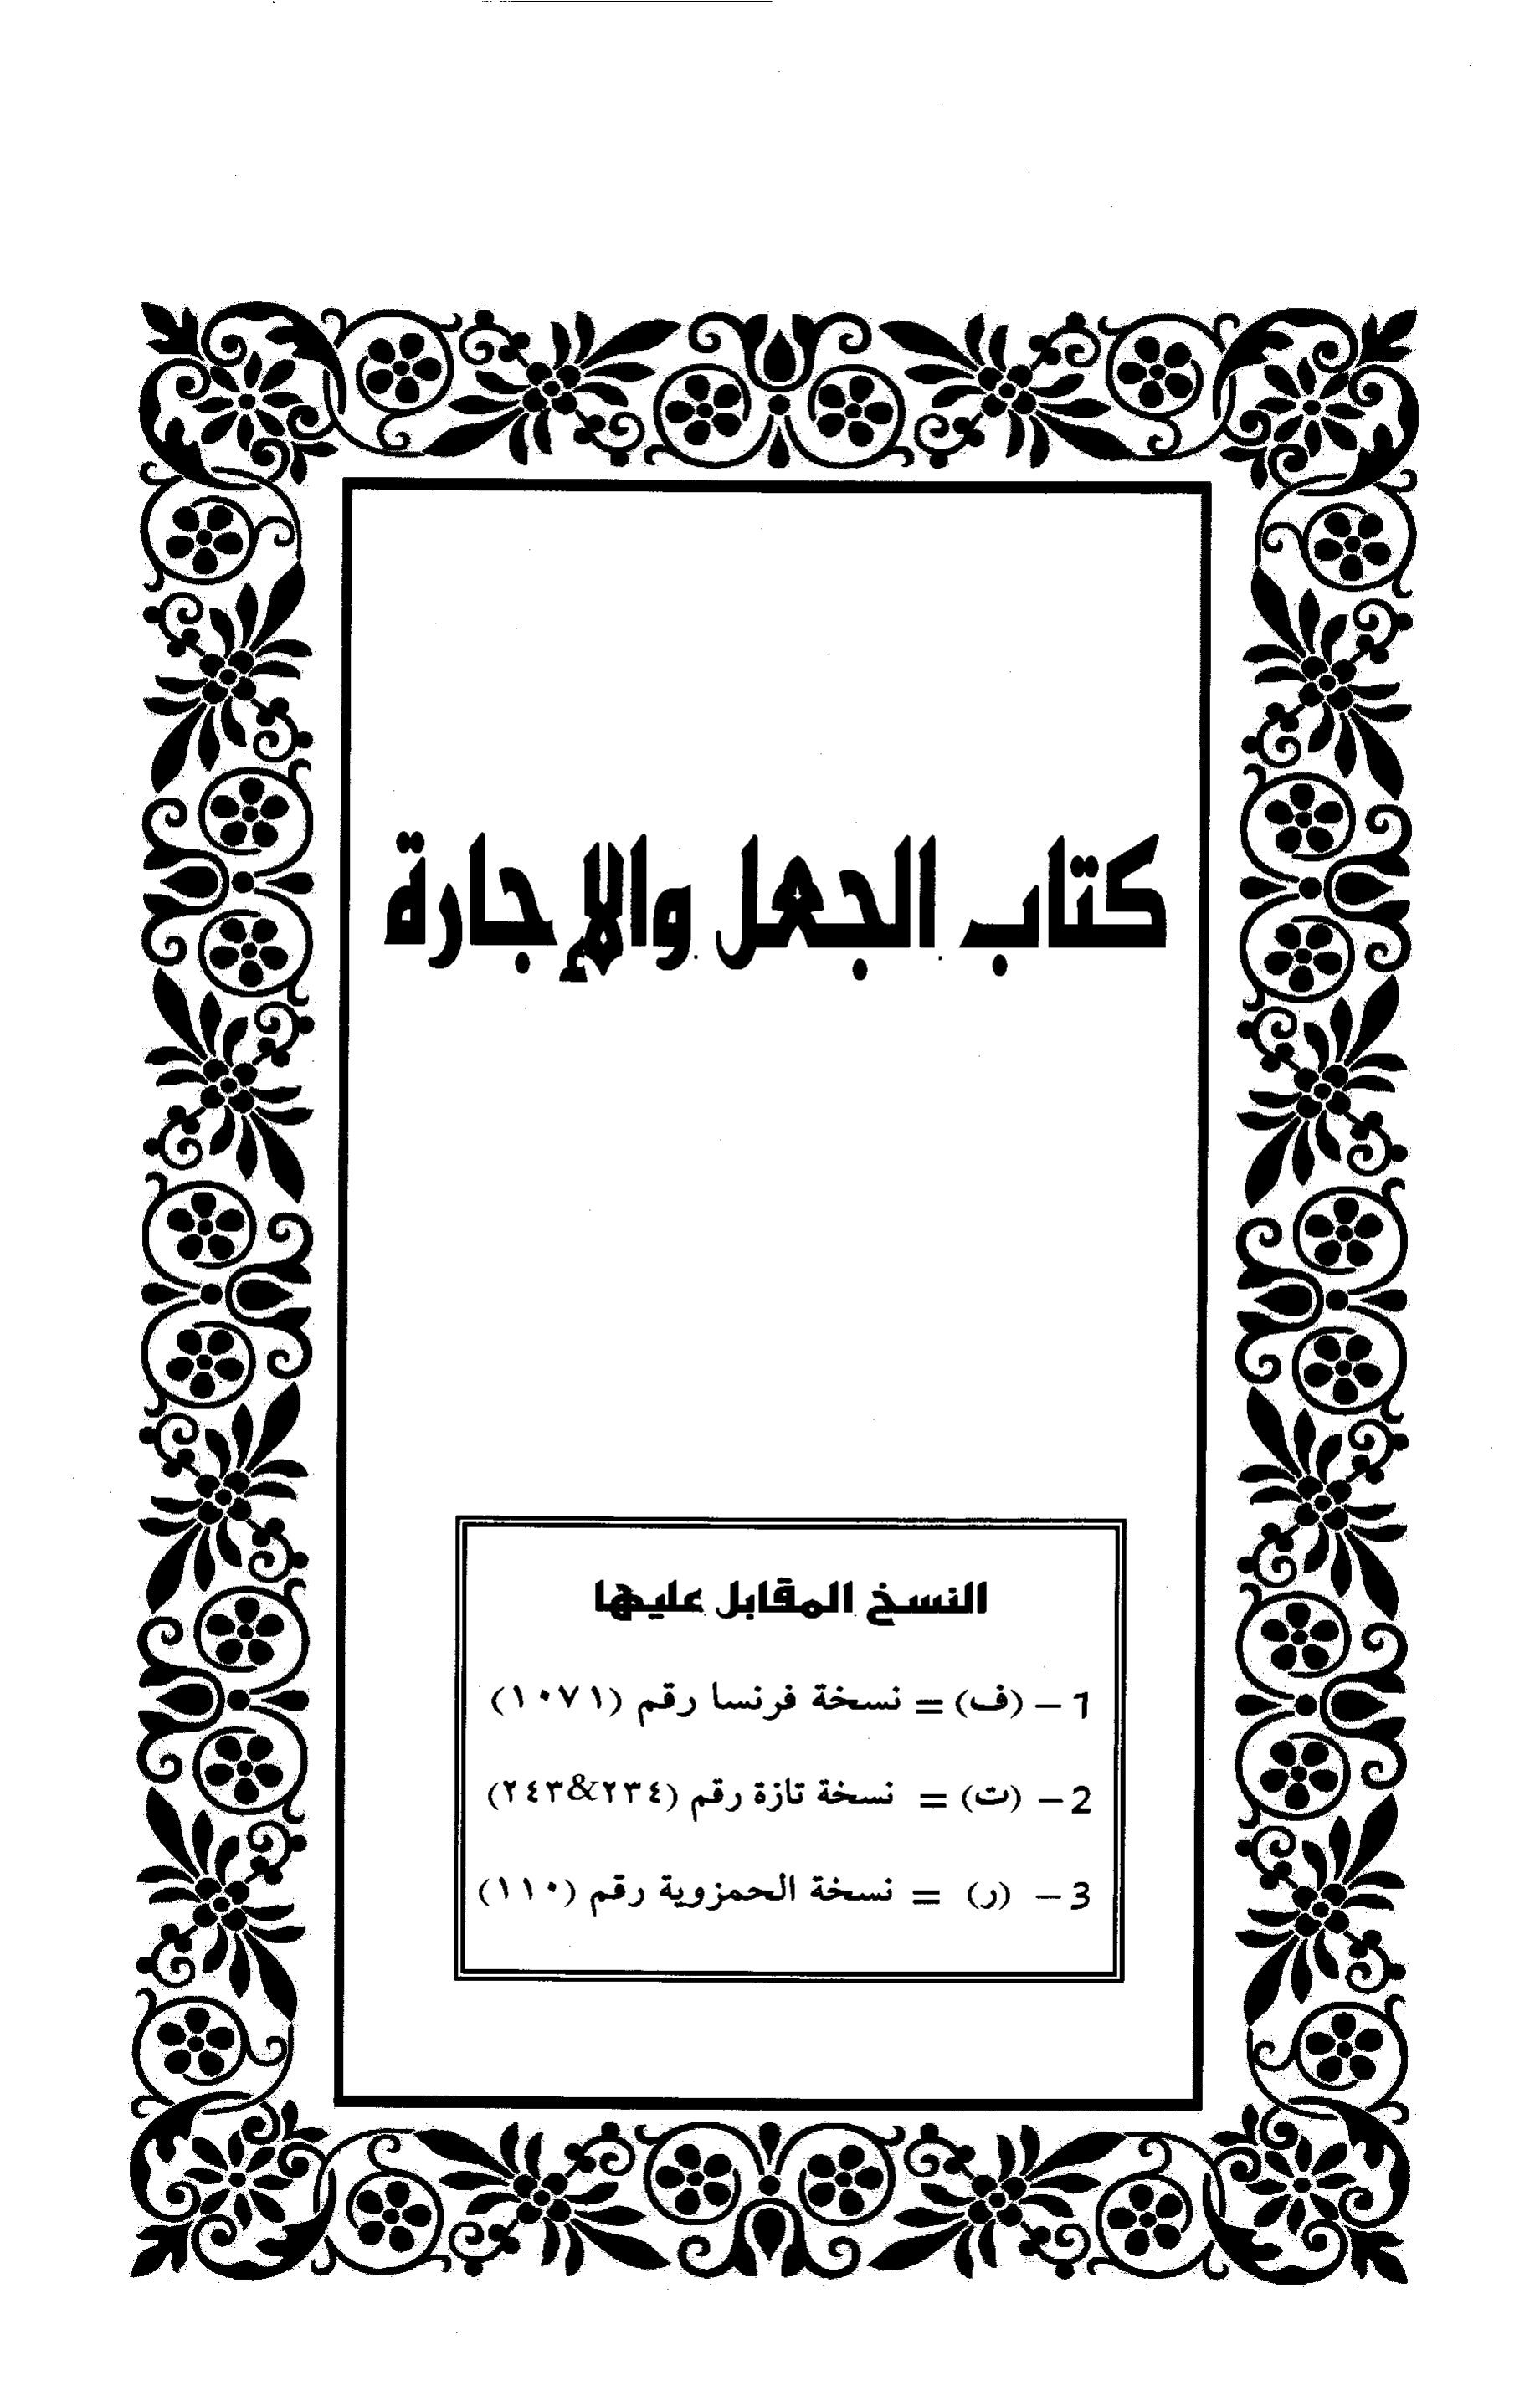 كتاب الجعل والإجارة
النسخ المقابل عليها
1 - (ف) = نسخة فرنسا رقم (١٠٧١)
2 - (ت) = نسخة تازة رقم (٢٣٤&٢٤٣)
3 - (ر) = نسخة الحمزوية رقم (١١٠)